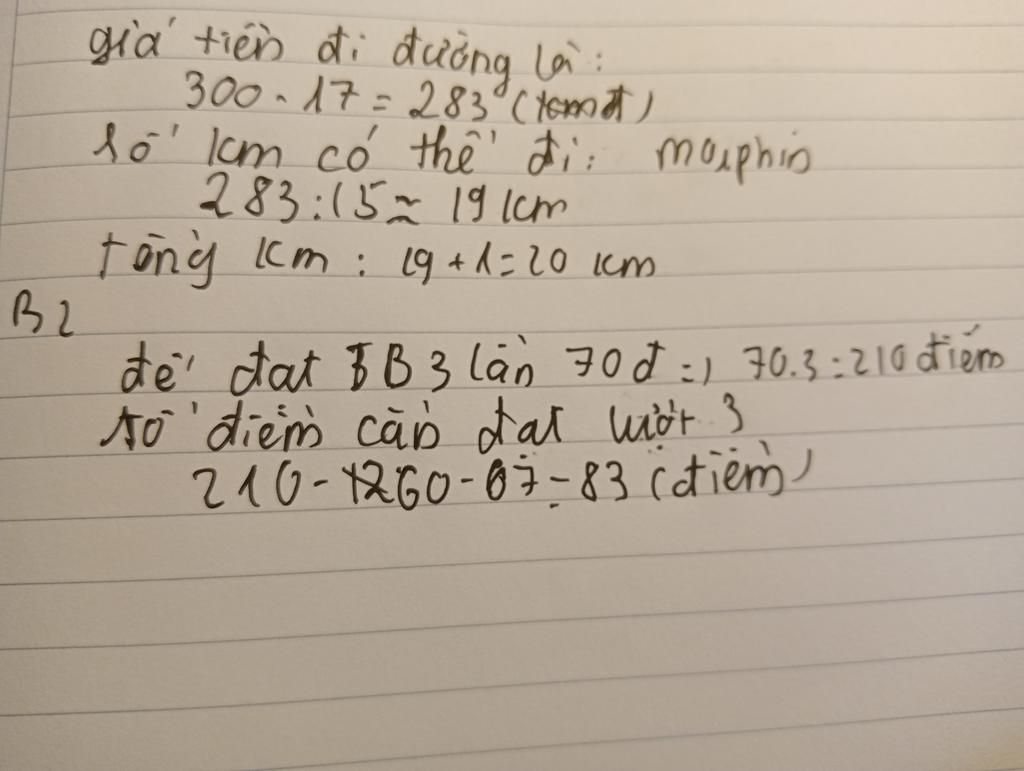 giá tiền đi đường là:
300 - 17 = 283 (
số km có thể đi:
283 : 15 ≈ 19 km
tổng km : 19 + 1 = 20 km
B2
để đạt TB 3 lần 70 đ => 70.3 = 210 điểm
số điểm cần đạt lượt 3
210 - 60 - 67 = 83 (điểm)